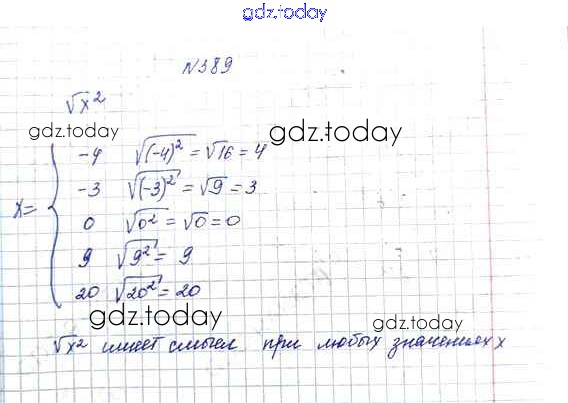 gdz.today
N389
√x²
gdz.today
gdz.today
-4 √(-4)² = √16 = 4
-3 √(-3)² = √9 = 3
x=
0 √0² = √0 = 0
9 √9² = 9
20 √20² = 20
gdz.today
gdz.today
√x² имеет смысл при любых значениях x